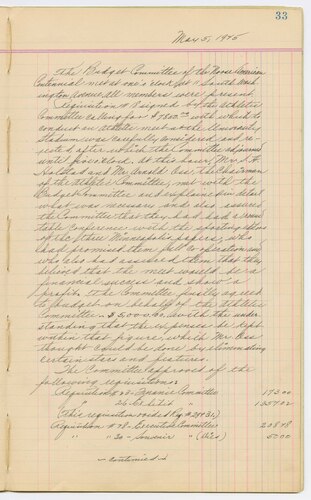 33
May 5, 1925
The Budget Committee of the Norse American
Centennial met at one o'clock at 11 South Wash-
ington Avenue. All members were present.
Requisition # 8 signed by the Athletic
Committee calling for $7800.00 with which to
conduct an Athletic meet at the University
Stadium was carefully analyzed and re-
jected after which the Committee adjourned
until four o'clock. At this hour, Mr.
and Mr. Arnold Oss, the Chairman
of the Athletic Committee, met with the
Budget Committee and explained in detail
what was necessary and also assured
the Committee that they had had a round
table Conference with the sporting editors
of the three Minneapolis papers, who
had promised them full Co-operation and
who also had assured them that they
believed that the meet would be a
financial success and show a
profit. The Committee finally agreed
to budget on behalf of the Athletic
Committee - $5,000.00 with the under
standing that the expenses be kept
within that figure, which Mr. Oss
thought could be done by eliminating
certain stars and features.
The Committee approved of the
following requisitions:
Requisition # 25 - Finance Committee 173 00
" 26 - Exhibits " 1357 02
(This requisition voided Req # 24 & 31)
Requisition # 28 - Executive Committee 208 78
" " 30 - Souvenir " (Dies) 50 00
- continued -